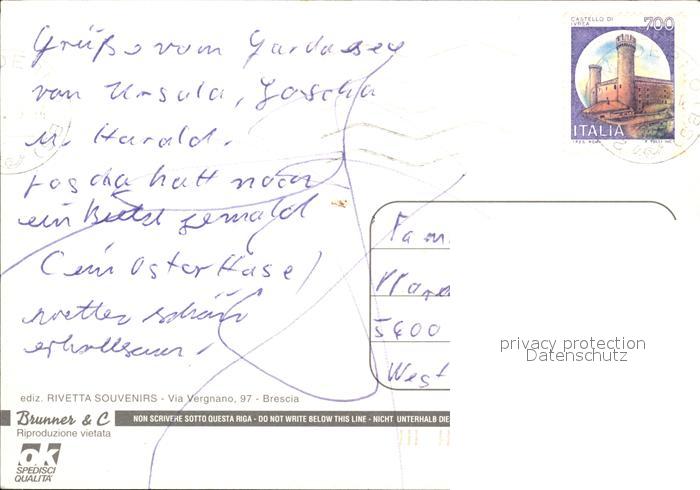 Grüße vom Gardasee
von Ursula, Joscha
u. Harald.
Joscha hatt noch
ein Bild gemald
(ein OsterHase)
wetter schön
erhollsam.
CASTELLO DI
IVREA
700
ITALIA
Fam.
5400
West
privacy protection
Datenschutz
ediz. RIVETTA SOUVENIRS - Via Vergnano, 97 - Brescia
Brunner & C
Riproduzione vietata
NON SCRIVERE SOTTO QUESTA RIGA - DO NOT WRITE BELOW THIS LINE - NICHT UNTERHALB DIE
ok
SPEDISCI
QUALITÀ